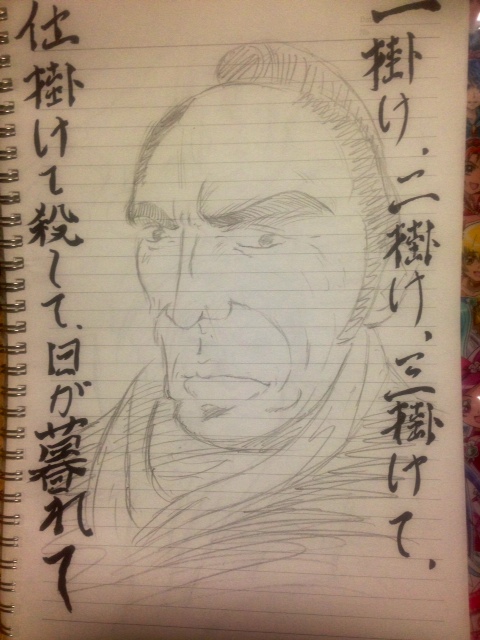 一掛け、二掛け、三掛けて、
仕掛けて殺して、日が暮れて